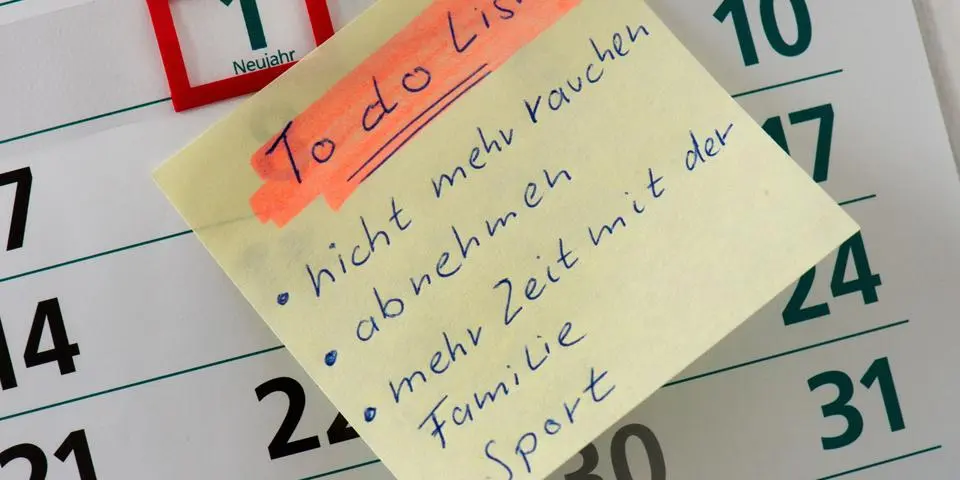 1
Neujahr
10
7
17
14
24
21
22
30
31
To do
nicht mehr rauchen
abnehmen
mehr Zeit mit der
Familie
Sport